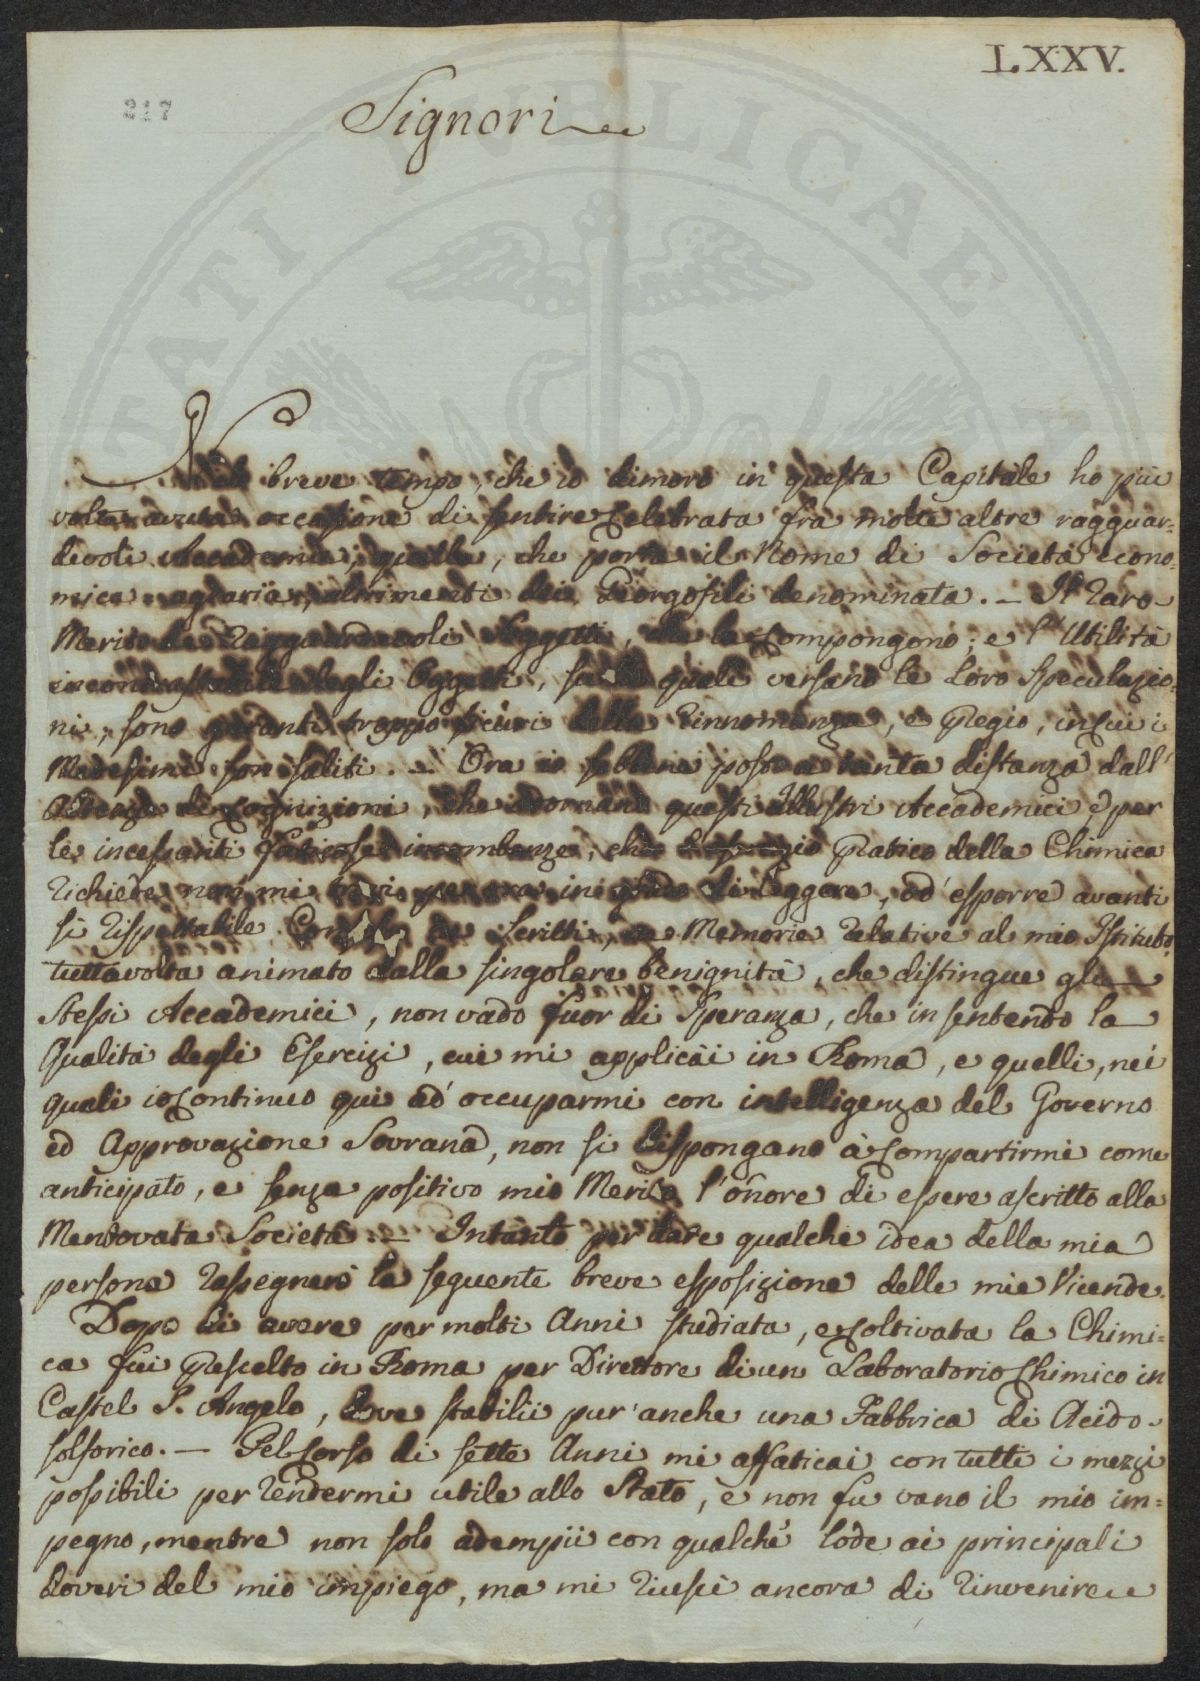 LXXV.
217
Signori
Nel breve tempo, che io dimoro in questa Capitale ho più
volte avuta occasione di sentire Celebrata fra molte altre ragguar=
devoli Accademie, quella, che porta il Nome di Società econo=
mica agraria, altrimenti dei Georgofili denominata. — Il raro
Merito de Ragguardevoli Soggetti, che la Compongono; e l'Utilità
incontrastabile degli Oggetti, su quali versano le Loro Speculazio=
ni, sono garanti troppo sicuri della Rinnomanza, e Pregio, in cui i
Medesimi son saliti. — Ora io sebbene posto a tanta distanza dall'
di Cognizioni, che adornano questi Illustri Accademici, e per
le incessanti faticose incombenze, che Pratico della Chimica
richiede, non mi trovi per ora in grado di leggere, od' esporre avanti
sì rispettabile Scritti, e Memorie relative al mio Istituto,
tuttavolta animato dalla singolare benignità, che distingue gli
stessi Accademici, non vado fuor di Speranza, che in sentendo la
Qualità degli Esercizi, cui mi applicai in Roma, e quelli, nei
quali io Continuo qui ad occuparmi con intelligenza del Governo
ed Approvazione Sovrana, non si dispongano à Compartirmi come
anticipato, e senza positivo mio Merito l'onore di essere ascritto alla
Mentovata Società. — Intanto per dare qualche idea della mia
persona rassegnerò la seguente breve esposizione delle mie Vicende.
Dopo di avere per molti Anni studiata, e Coltivata la Chimi=
ca fui Prescelto in Roma per Direttore di un Laboratorio Chimico in
Castel S. Angelo, dove stabilii pur' anche una Fabbrica di Acido
solforico. — Nel Corso di sette Anni mi affaticai con tutti i mezzi
possibili per rendermi utile allo Stato, e non fu vano il mio im=
pegno, mentre non solo adempii con qualche lode ai principali
doveri del mio impiego, ma mi riuscì ancora di rinvenire
TATI PUBLICAE